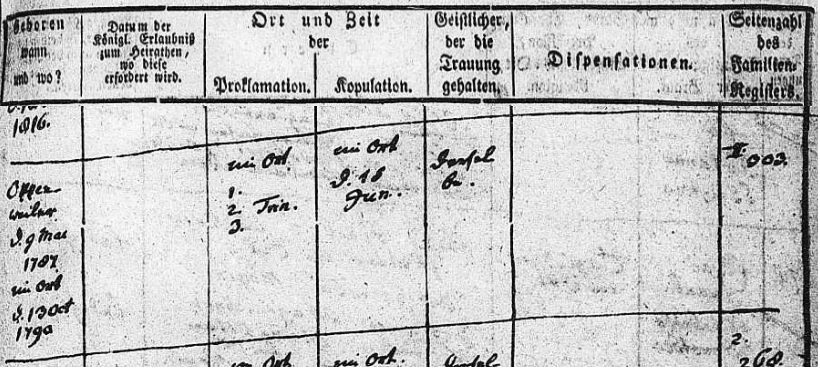 Geboren
wann
und wo?
Datum der
Königl. Erlaubniß
zum Heirathen,
wo diese
erfordert wird.
Ort und Zeit
der
Proklamation.
Kopulation.
Geistlicher,
der die
Trauung
gehalten.
Dispensationen.
Seitenzahl
des
Familien-
Registers.
1816.
Oppen-
weiler
d. 9 Mai
1787.
im Ort
d. 13 Oct
1790
im Ort.
1.
2. Trin.
3.
im Ort
d. 18
Jun.
Dersel
be.
II.
003.
im Ort.
im Ort.
Dersel
2.
268.